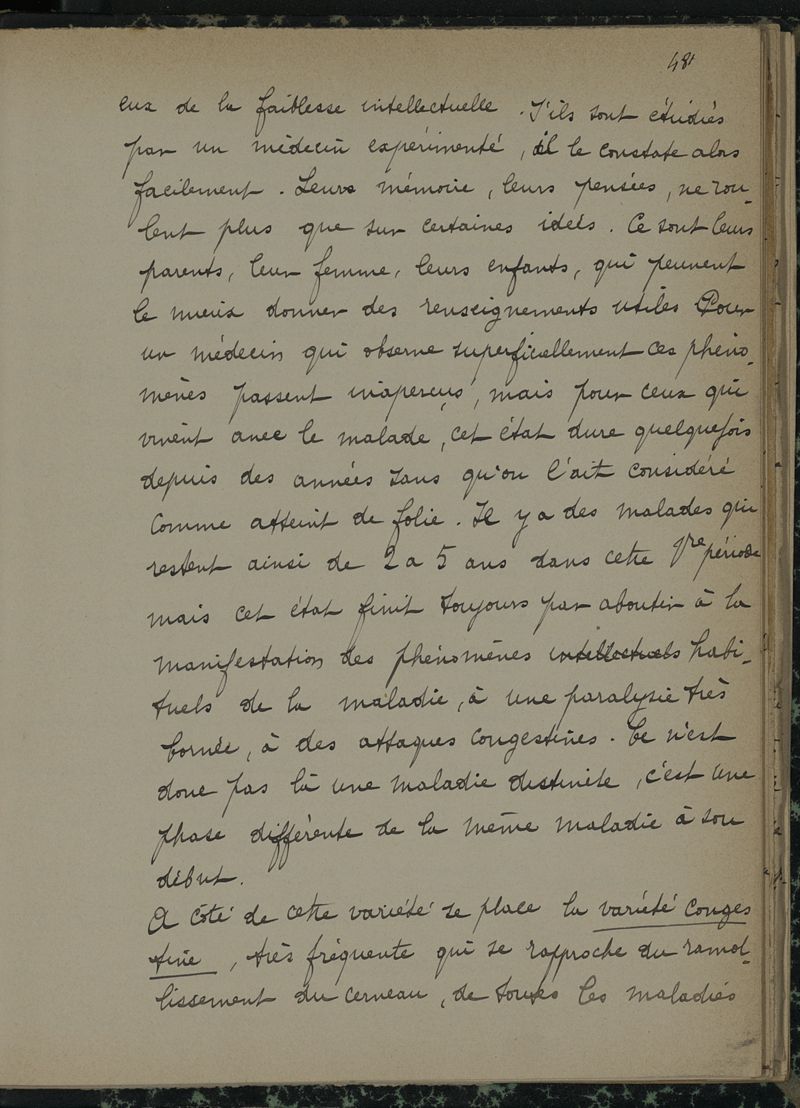 48
eux de la faiblesse intellectuelle. S'ils sont étudiés
par un médecin expérimenté, il le constate alors
facilement. Leurs mémoire, leurs pensées, ne rou-
lent plus que sur certaines idées. Ce sont leurs
parents, leur femme, leurs enfants, qui peuvent
le mieux donner des renseignements utiles Pour
un médecin qui observe superficiellement ces phéno-
mènes passent inaperçus, mais pour ceux qui
vivent avec le malade, cet état dure quelquefois
depuis des années sans qu'on l'ait considéré
comme atteint de folie. Il y a des malades qui
restent ainsi de 2 a 5 ans dans cette 1re période
mais cet état finit toujours par aboutir à la
manifestation des phénomènes intellectuels habi-
tuels de la maladie, à une paralysie très
bornée, à des attaques congestives. Ce n'est
donc pas là une maladie distincte, c'est une
phase différente de la même maladie à son
début.
A côté de cette variété se place la variété conges
tive, très fréquente qui se rapproche du ramol-
lissement du cerveau, de toutes les maladies